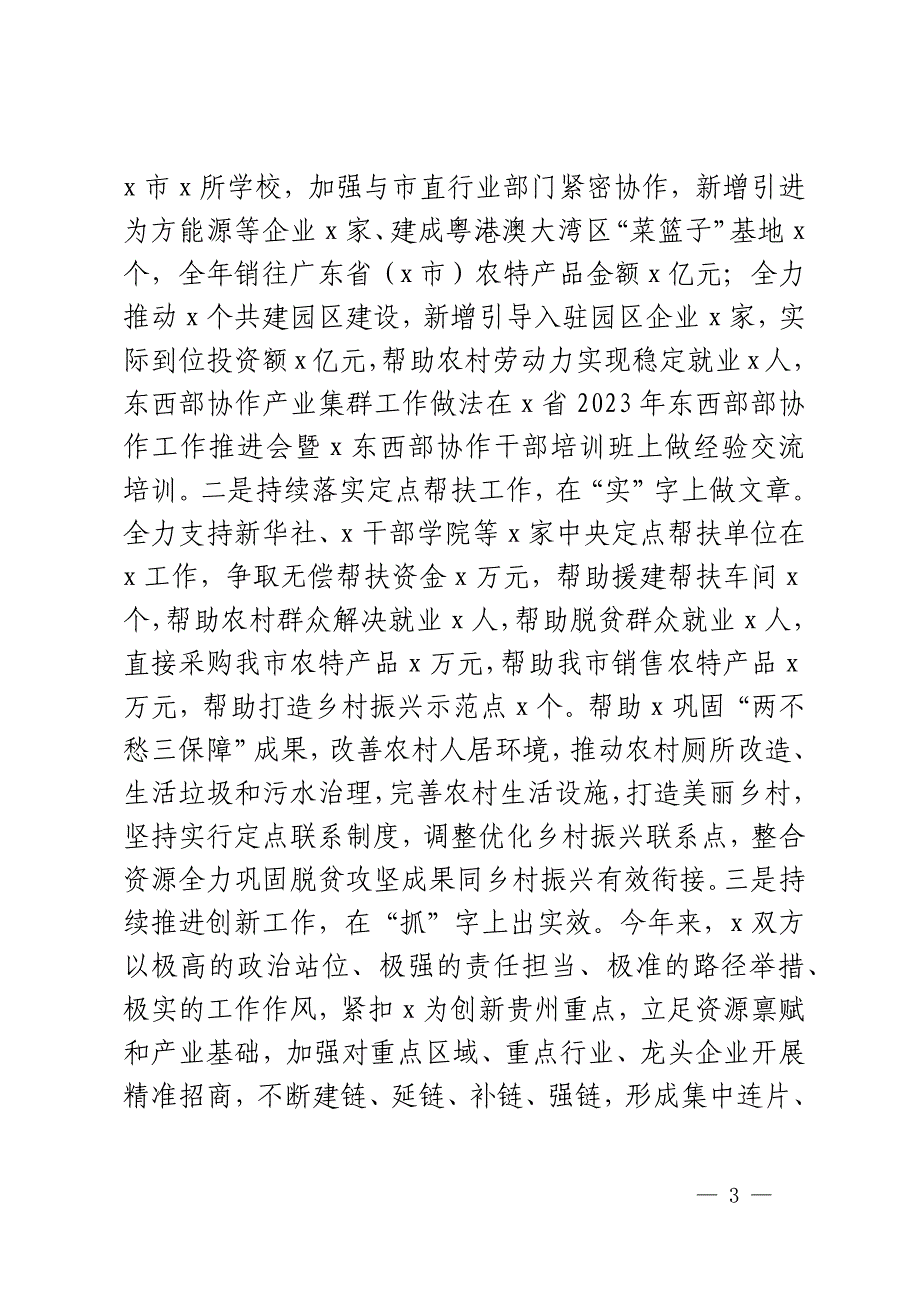 x 市 x 所学校，加强与市直行业部门紧密协作，新增引进
为方能源等企业 x 家、建成粤港澳大湾区“菜篮子”基地 x
个，全年销往广东省（x 市）农特产品金额 x 亿元；全力
推动 x 个共建园区建设，新增引导入驻园区企业 x 家，实
际到位投资额 x 亿元，帮助农村劳动力实现稳定就业 x 人，
东西部协作产业集群工作做法在 x 省 2023 年东西部部协
作工作推进会暨 x 东西部协作干部培训班上做经验交流
培训。二是持续落实定点帮扶工作，在“实”字上做文章。
全力支持新华社、x 干部学院等 x 家中央定点帮扶单位在
x 工作，争取无偿帮扶资金 x 万元，帮助援建帮扶车间 x
个，帮助农村群众解决就业 x 人，帮助脱贫群众就业 x 人，
直接采购我市农特产品 x 万元，帮助我市销售农特产品 x
万元，帮助打造乡村振兴示范点 x 个。帮助 x 巩固“两不
愁三保障”成果，改善农村人居环境，推动农村厕所改造、
生活垃圾和污水治理，完善农村生活设施，打造美丽乡村，
坚持实行定点联系制度，调整优化乡村振兴联系点，整合
资源全力巩固脱贫攻坚成果同乡村振兴有效衔接。三是持
续推进创新工作，在“抓”字上出实效。今年来，x 双方
以极高的政治站位、极强的责任担当、极准的路径举措、
极实的工作作风，紧扣 x 为创新贵州重点，立足资源禀赋
和产业基础，加强对重点区域、重点行业、龙头企业开展
精准招商，不断建链、延链、补链、强链，形成集中连片、
— 3 —